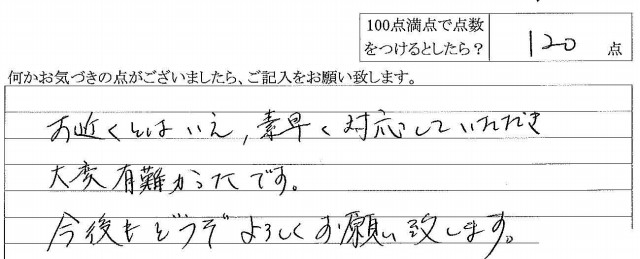 100点満点で点数
をつけるとしたら？ 120 点
何かお気づきの点がございましたら、ご記入をお願い致します。
お近くとはいえ，素早く対応していただき
大変有難かったです。
今後もどうぞよろしくお願い致します。